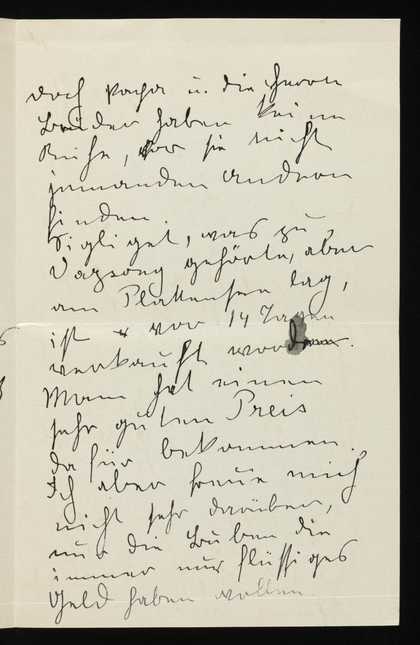 doch Papa u. die Herrn
Brüder haben keine
Ruhe, vor sie nicht
jemanden andern
finden.
Sigliget, was zu
Vazsony gehörte, aber
am Plattensee lag,
ist vor 14 Tagen
verkauft worden.
Mama hat einen
sehr guten Preis
dafür bekommen.
Ich aber freue mich
nicht sehr darüber,
nur die Buben die
immer nur flüssiges
Geld haben wollen